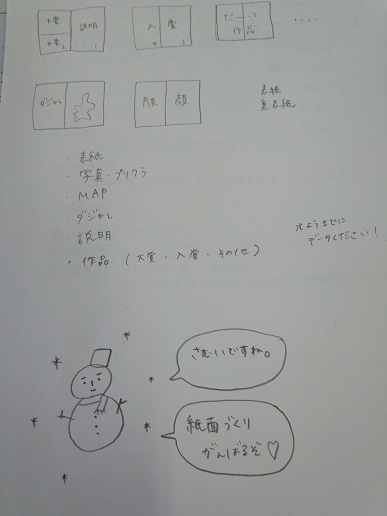 大賞
大賞2
説明
1
入
賞
4
3
だーっと
作品
......
ダジャレ
顔
顔
表紙
裏表紙
・表紙
・写真・プリクラ
・MAP
・ダジャレ
・説明
・作品 (大賞・入賞・その他)
水ようまでに
データください!
さむいですね。
紙面づくり
がんばるぞ♡